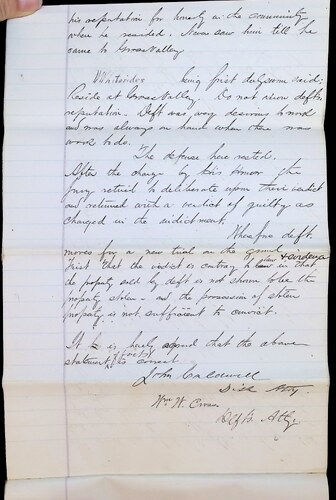 his reputation for honesty in the community
where he resided. Never saw him till he
came to Grass Valley.
Whitesides being first duly sworn said:
Reside at Grass Valley. Do not know defts
reputation. Deft was very desirous to work
and was always on hand when there was
work to do.
The defense here rested.
After the charge by his Honor the
Jury retired to deliberate upon their verdict
and returned with a verdict of guilty as
charged in the indictment.
Wherefore deft.
moves for a new trial on the ground
first that the verdict is contrary to law & evidence in that
the property sold by deft is not shown to be the
property stolen - and the possession of stolen
property is not sufficient to convict.
It is hereby agreed that the above
statement of facts is correct
John Caldwell
Dist Atty.
Wm. W. Cross
Defts Atty.